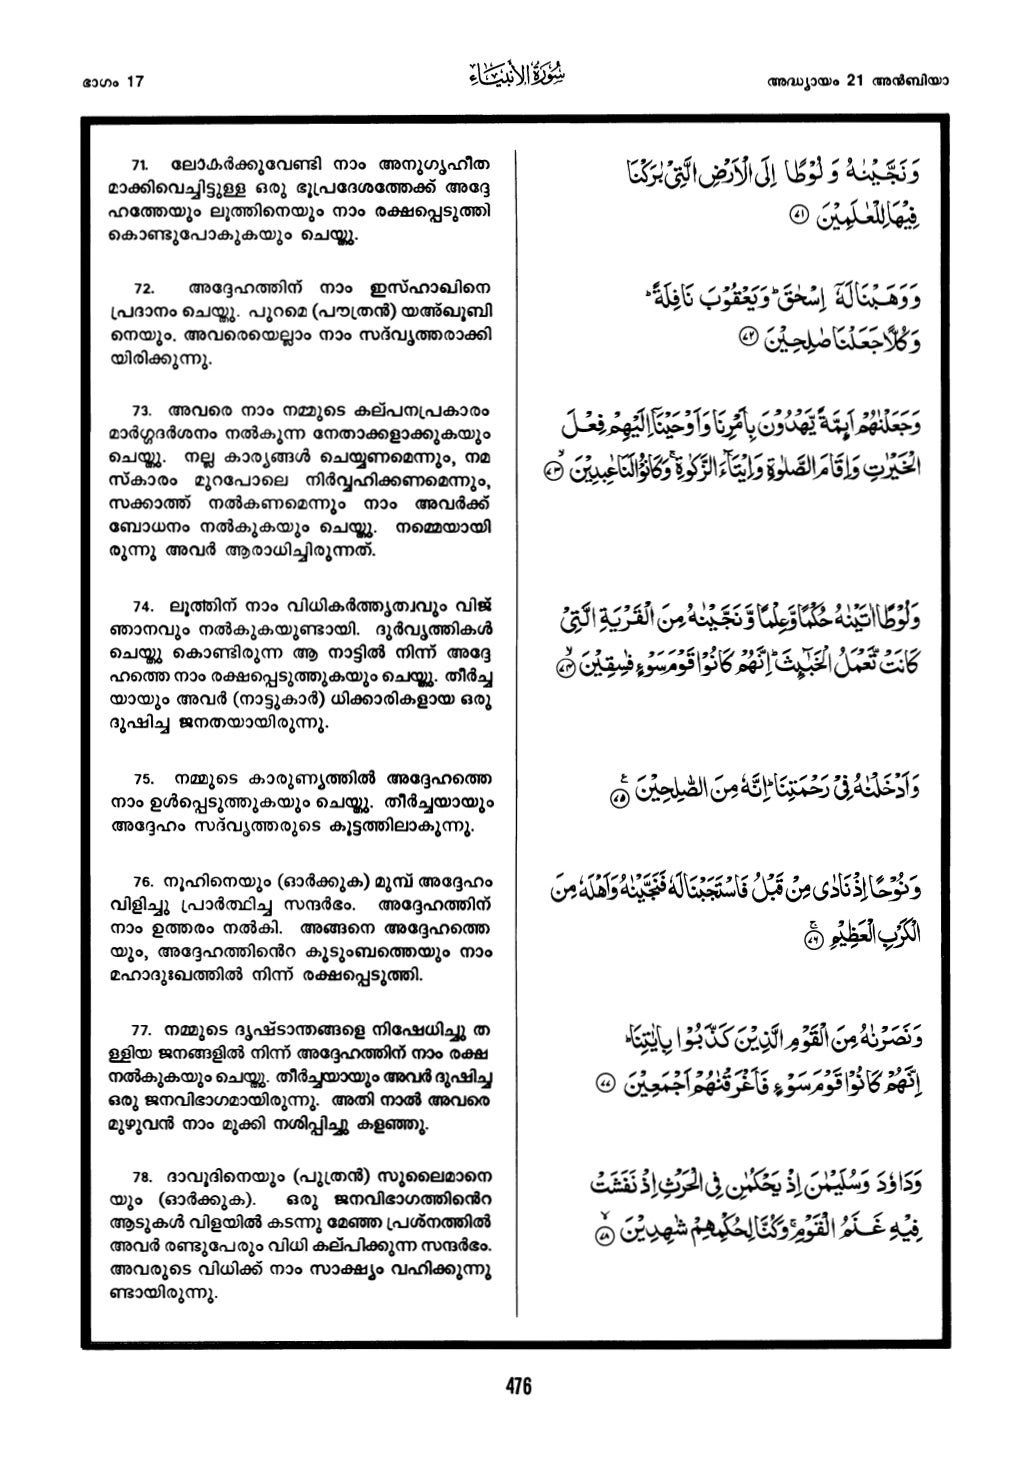 ഭാഗം 17
سُوْرَةُ الْأَنْبِيَاءِ
അദ്ധ്യായം 21 അൻബിയാ
71. ലോകർക്കുവേണ്ടി നാം അനുഗൃഹീത
മാക്കിവെച്ചിട്ടുള്ള ഒരു ഭൂപ്രദേശത്തേക്ക് അദ്ദേ
ഹത്തേയും ലൂത്തിനെയും നാം രക്ഷപ്പെടുത്തി
കൊണ്ടുപോകുകയും ചെയ്തു.
وَنَجَّيْنٰهُ وَلُوْطًا إِلَى الْاَرْضِ الَّتِيْ بٰرَكْنَا
فِيْهَا لِلْعٰلَمِيْنَ ﴿٧١﴾
72. അദ്ദേഹത്തിന് നാം ഇസ്ഹാഖിനെ
പ്രദാനം ചെയ്തു. പുറമെ (പൗത്രൻ) യഅ്ഖൂബി
നെയും. അവരെയെല്ലാം നാം സദ്‌വൃത്തരാക്കി
യിരിക്കുന്നു.
وَوَهَبْنَا لَهٗٓ اِسْحٰقَ ؕ وَيَعْقُوْبَ نَافِلَةً ؕ
وَكُلًّا جَعَلْنَا صٰلِحِيْنَ ﴿٧٢﴾
73. അവരെ നാം നമ്മുടെ കല്പനപ്രകാരം
മാർഗ്ഗദർശനം നൽകുന്ന നേതാക്കളാക്കുകയും
ചെയ്തു. നല്ല കാര്യങ്ങൾ ചെയ്യണമെന്നും, നമ
സ്കാരം മുറപോലെ നിർവ്വഹിക്കണമെന്നും,
സക്കാത്ത് നൽകണമെന്നും നാം അവർക്ക്
ബോധനം നൽകുകയും ചെയ്തു. നമ്മെയായി
രുന്നു അവർ ആരാധിച്ചിരുന്നത്.
وَجَعَلْنٰهُمْ اَئِمَّةً يَّهْدُوْنَ بِاَمْرِنَا وَاَوْحَيْنَآ اِلَيْهِمْ فِعْلَ
الْخَيْرٰتِ وَاِقَامَ الصَّلٰوةِ وَاِيْتَآءَ الزَّكٰوةِ ۚ وَكَانُوْا لَنَا عٰبِدِيْنَ ﴿٧٣﴾
74. ലൂത്തിന് നാം വിധികർത്തൃത്വവും വിജ്
ഞാനവും നൽകുകയുണ്ടായി. ദുർവൃത്തികൾ
ചെയ്തു കൊണ്ടിരുന്ന ആ നാട്ടിൽ നിന്ന് അദ്ദേ
ഹത്തെ നാം രക്ഷപ്പെടുത്തുകയും ചെയ്തു. തീർച്ച
യായും അവർ (നാട്ടുകാർ) ധിക്കാരികളായ ഒരു
ദുഷിച്ച ജനതയായിരുന്നു.
وَلُوْطًا اٰتَيْنٰهُ حُكْمًا وَّعِلْمًا وَّنَجَّيْنٰهُ مِنَ الْقَرْيَةِ الَّتِيْ
كَانَتْ تَّعْمَلُ الْخَبٰٓئِثَ ؕ اِنَّهُمْ كَانُوْا قَوْمَ سَوْءٍ فٰسِقِيْنَ ﴿٧٤﴾
75. നമ്മുടെ കാരുണ്യത്തിൽ അദ്ദേഹത്തെ
നാം ഉൾപ്പെടുത്തുകയും ചെയ്തു. തീർച്ചയായും
അദ്ദേഹം സദ്‌വൃത്തരുടെ കൂട്ടത്തിലാകുന്നു.
وَاَدْخَلْنٰهُ فِيْ رَحْمَتِنَا ؕ اِنَّهٗ مِنَ الصّٰلِحِيْنَ ﴿٧٥﴾
76. നൂഹിനെയും (ഓർക്കുക) മുമ്പ് അദ്ദേഹം
വിളിച്ചു പ്രാർത്ഥിച്ച സന്ദർഭം. അദ്ദേഹത്തിന്
നാം ഉത്തരം നൽകി. അങ്ങനെ അദ്ദേഹത്തെ
യും, അദ്ദേഹത്തിൻെറ കുടുംബത്തെയും നാം
മഹാദുഃഖത്തിൽ നിന്ന് രക്ഷപ്പെടുത്തി.
وَنُوْحًا اِذْ نَادٰى مِنْ قَبْلُ فَاسْتَجَبْنَا لَهٗ فَنَجَّيْنٰهُ وَاَهْلَهٗ مِنَ
الْكَرْبِ الْعَظِيْمِ ﴿٧٦﴾
77. നമ്മുടെ ദൃഷ്ടാന്തങ്ങളെ നിഷേധിച്ചു ത
ള്ളിയ ജനങ്ങളിൽ നിന്ന് അദ്ദേഹത്തിന് നാം രക്ഷ
നൽകുകയും ചെയ്തു. തീർച്ചയായും അവർ ദുഷിച്ച
ഒരു ജനവിഭാഗമായിരുന്നു. അതി നാൽ അവരെ
മുഴുവൻ നാം മുക്കി നശിപ്പിച്ചു കളഞ്ഞു.
وَنَصَرْنٰهُ مِنَ الْقَوْمِ الَّذِيْنَ كَذَّبُوْا بِاٰيٰتِنَا ؕ
اِنَّهُمْ كَانُوْا قَوْمَ سَوْءٍ فَاَغْرَقْنٰهُمْ اَجْمَعِيْنَ ﴿٧٧﴾
78. ദാവൂദിനെയും (പുത്രൻ) സുലൈമാനെ
യും (ഓർക്കുക). ഒരു ജനവിഭാഗത്തിൻെറ
ആടുകൾ വിളയിൽ കടന്നു മേഞ്ഞ പ്രശ്നത്തിൽ
അവർ രണ്ടുപേരും വിധി കല്പിക്കുന്ന സന്ദർഭം.
അവരുടെ വിധിക്ക് നാം സാക്ഷ്യം വഹിക്കുന്നു
ണ്ടായിരുന്നു.
وَدَاوٗدَ وَسُلَيْمٰنَ اِذْ يَحْكُمٰنِ فِى الْحَرْثِ اِذْ نَفَشَتْ
فِيْهِ غَنَمُ الْقَوْمِ ۚ وَكُنَّا لِحُكْمِهِمْ شٰهِدِيْنَ ﴿٧٨﴾
476